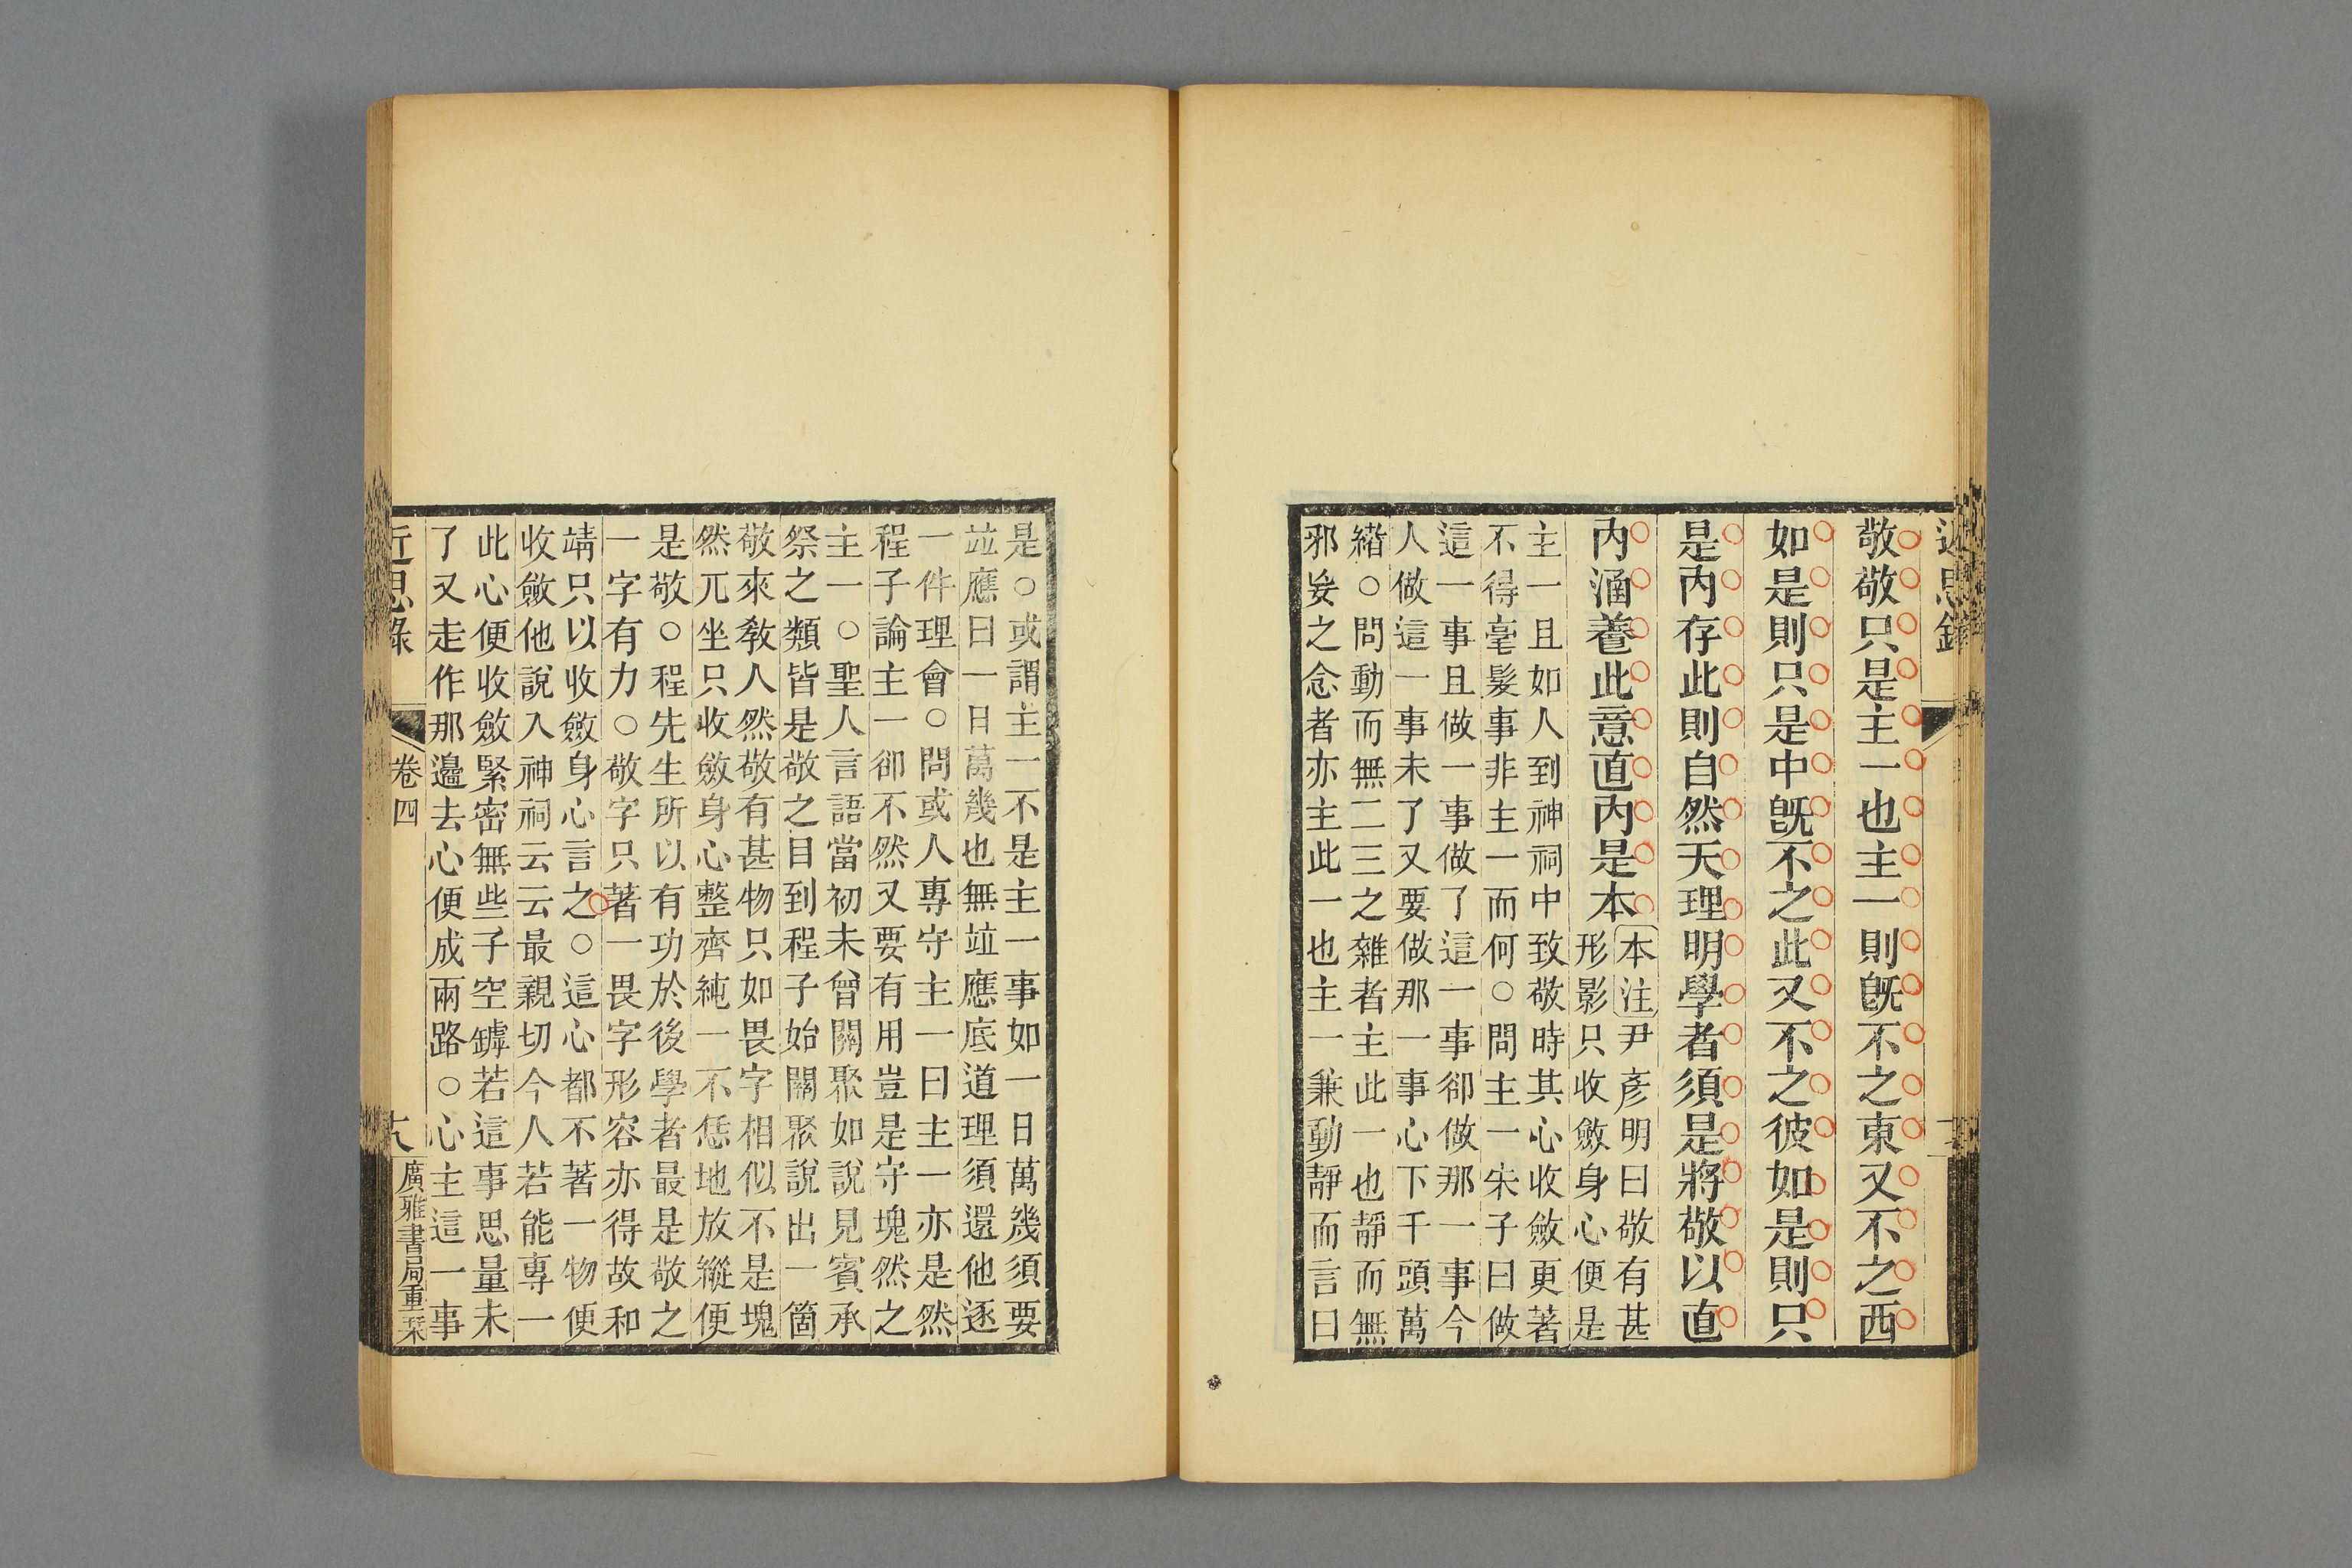 近思錄
敬敬只是主一也主一則旣不之東又不之西
如是則只是中旣不之此又不之彼如是則只
是內存此則自然天理明學者須是將敬以直
內涵養此意直內是本
本注尹彥明曰敬有甚
形影只收斂身心便是
主一且如人到神祠中致敬時其心收斂更著
不得毫髮事非主一而何○問主一朱子曰做
這一事且做一事做了這一事卻做那一事今
人做這一事未了又要做那一事心下千頭萬
緒○問動而無二三之雜者主此一也靜而無
邪妄之念者亦主此一也主一兼動靜而言曰
是○或謂主一不是主一事如一日萬幾須要
竝應曰一日萬幾也無竝應底道理須還他逐
一件理會○問或人專守主一曰主一亦是然
程子論主一卻不然又要有用豈是守塊然之
主一○聖人言語當初未曾關聚如說見賓承
祭之類皆是敬之目到程子始關聚說出一箇
敬來敎人然敬有甚物只如畏字相似不是塊
然兀坐只收斂身心整齊純一不恁地放縱便
是敬○程先生所以有功於後學者最是敬之
一字有力○敬字只著一畏字形容亦得故和
靖只以收斂身心言之○這心都不著一物便
收斂他說入神祠云云最親切今人若能專一
此心便收斂緊密無些子空罅若這事思量未
了又走作那邊去心便成兩路○心主這一事
近思錄
卷四
廣雅書局重栞